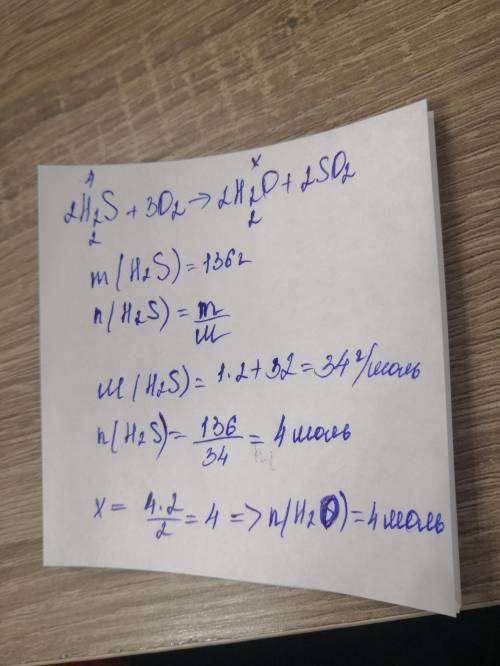 4 x
2H₂S + 3O₂ → 2H₂O + 2SO₂
2 2
m(H₂S) = 136г
n(H₂S) = m/M
M(H₂S) = 1·2+32 = 34 г/моль
n(H₂S) = 136/34 = 4 моль
x = 4·2/2 = 4 => n(H₂O) = 4 моль